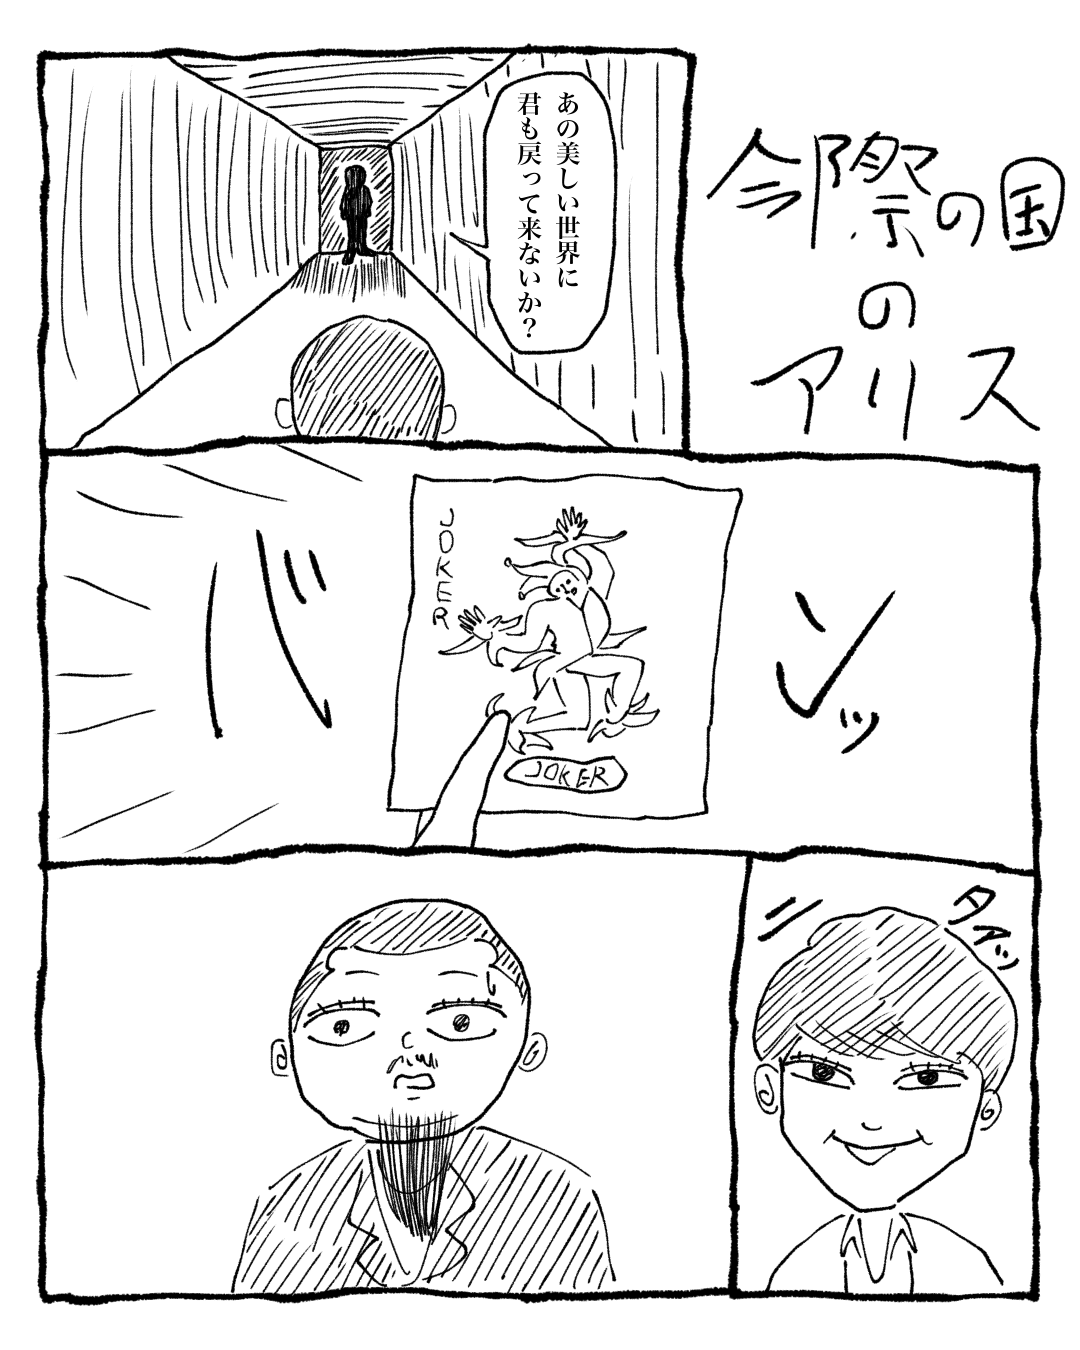 今際の国
の
アリス
あの美しい世界に
君も戻って来ないか？
バンッ
JOKER
JOKER
ニタァッ